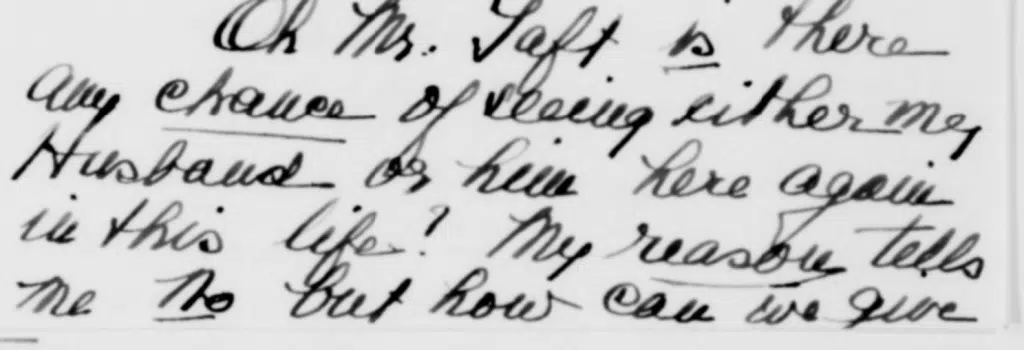 Oh Mr. Taft is there
any chance of seeing either my
Husband or him here again
in this life? My reason tells
me No but how can we give